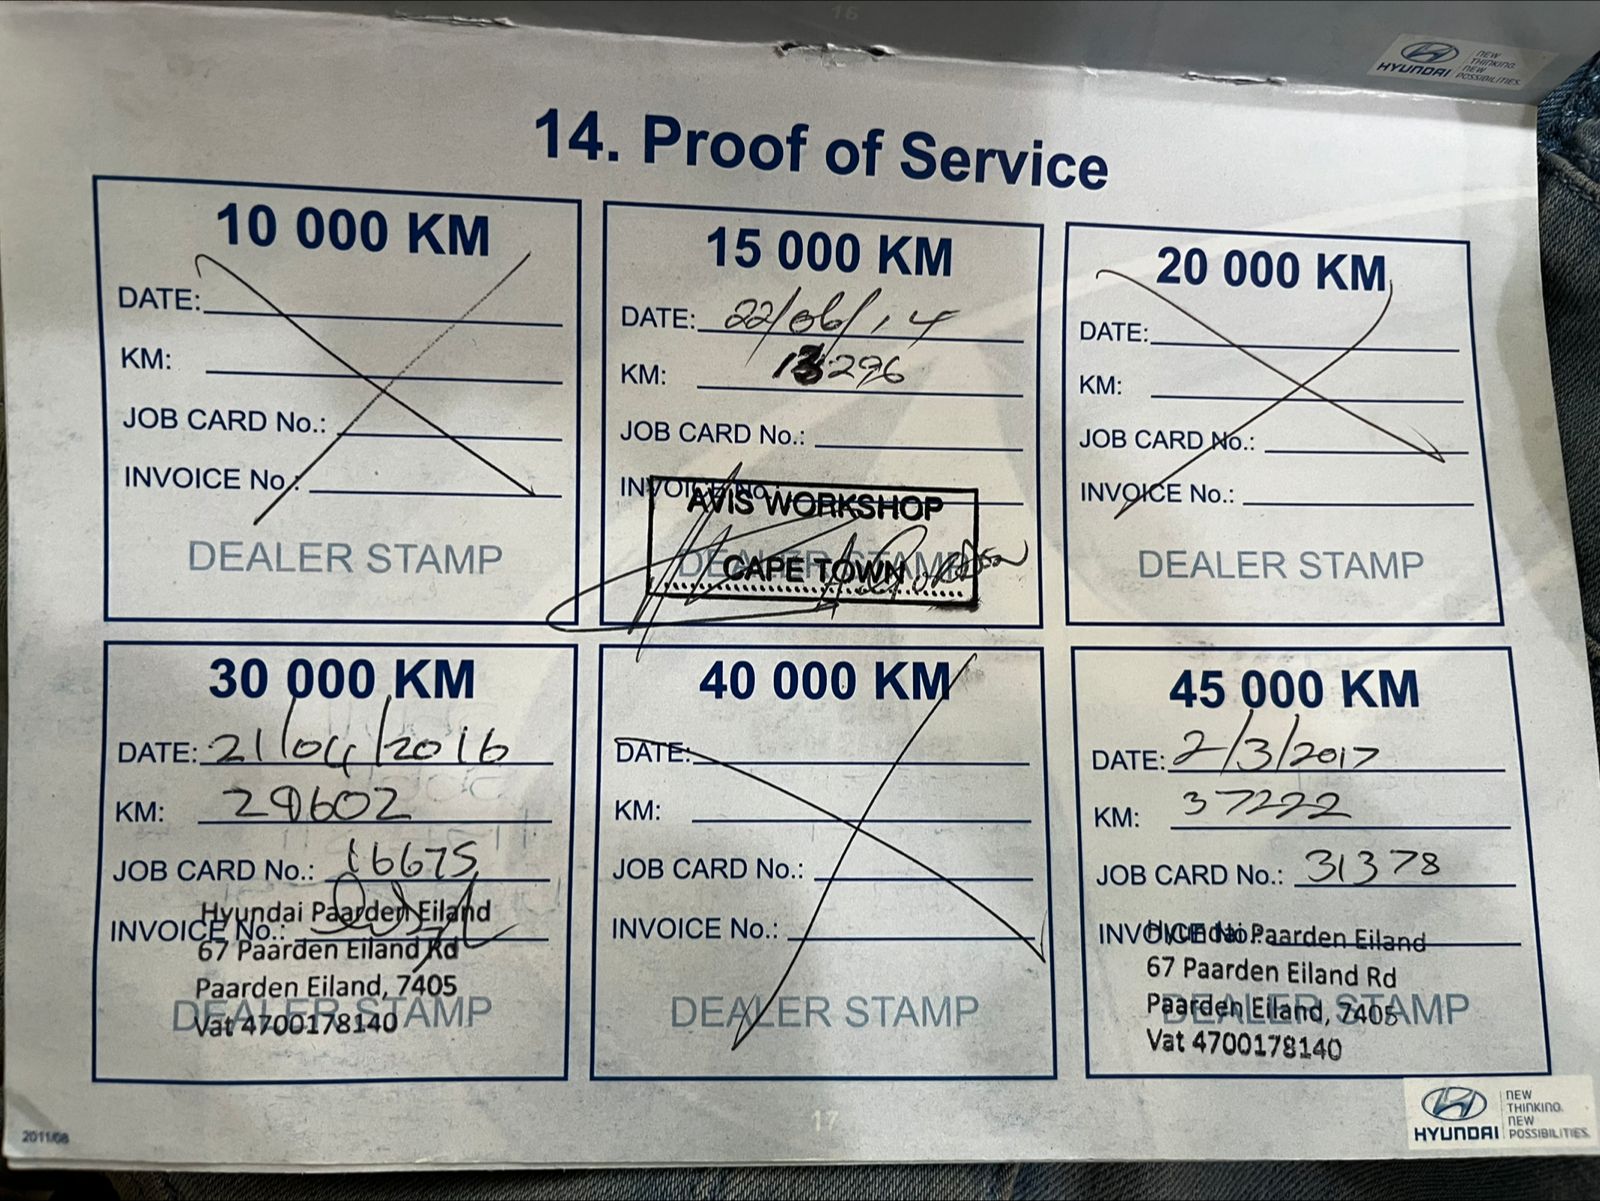 16
HYUNDAI
NEW
THINKING.
NEW
POSSIBILITIES.
14. Proof of Service
10 000 KM
DATE:
KM:
JOB CARD No.:
INVOICE No.:
DEALER STAMP
15 000 KM
DATE: 22/06/14
KM: 13296
JOB CARD No.:
INVOICE No.:
AVIS WORKSHOP
DEALER STAMP
CAPE TOWN
20 000 KM
DATE:
KM:
JOB CARD No.:
INVOICE No.:
DEALER STAMP
30 000 KM
DATE: 21/04/2016
KM: 28602
JOB CARD No.: 16675
INVOICE No.:
Hyundai Paarden Eiland
67 Paarden Eiland Rd
Paarden Eiland, 7405
DEALER STAMP
Vat 4700178140
40 000 KM
DATE:
KM:
JOB CARD No.:
INVOICE No.:
DEALER STAMP
45 000 KM
DATE: 2/3/2017
KM: 37222
JOB CARD No.: 31378
INVOICE No.:
Hyundai Paarden Eiland
67 Paarden Eiland Rd
Paarden Eiland, 7405
DEALER STAMP
Vat 4700178140
2011/08
17
HYUNDAI
NEW
THINKING.
NEW
POSSIBILITIES.